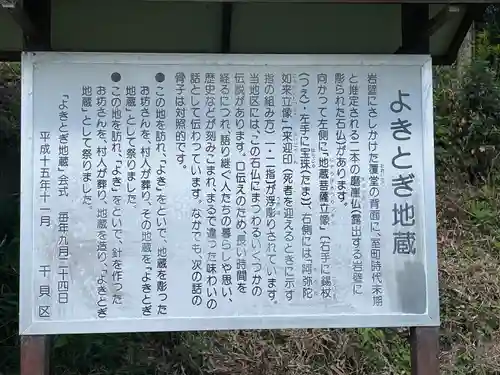 よきとぎ地蔵
岩壁にさしかけた覆堂の背面に、室町時代末期
と推定される二本の磨崖仏(露出する岩壁に
彫られた石仏)があります。
向かって左側に「地蔵菩薩立像」(右手に錫杖
(つえ)・左手に宝珠(たま))、右側には、「阿弥陀
如来立像」(来迎印(死者を迎えるときに示す
指の組み方)一・二指)が浮彫りされています。
当地区には、この石仏にまつわるいくつかの
伝説があります。口伝えのため、長い時間を
経るにつれ、語り継ぐ人たちの暮らしや思い、
歴史などが刻みこまれ、まるで違った味わいの
話として伝わっています。なかでも、次の話の
骨子は対照的です。
●この地を訪れ、「よき」をといで、地蔵を彫った
お坊さんを、村人が葬り、その地蔵を「よきとぎ
地蔵」として祭りました。
●この地を訪れ、「よき」をといで、針を作った
お坊さんを、村人が葬り、地蔵を造り、「よきとぎ
地蔵」として祭りました。
「よきとぎ地蔵」会式 毎年九月二十四日
平成十五年十一月 干貝区